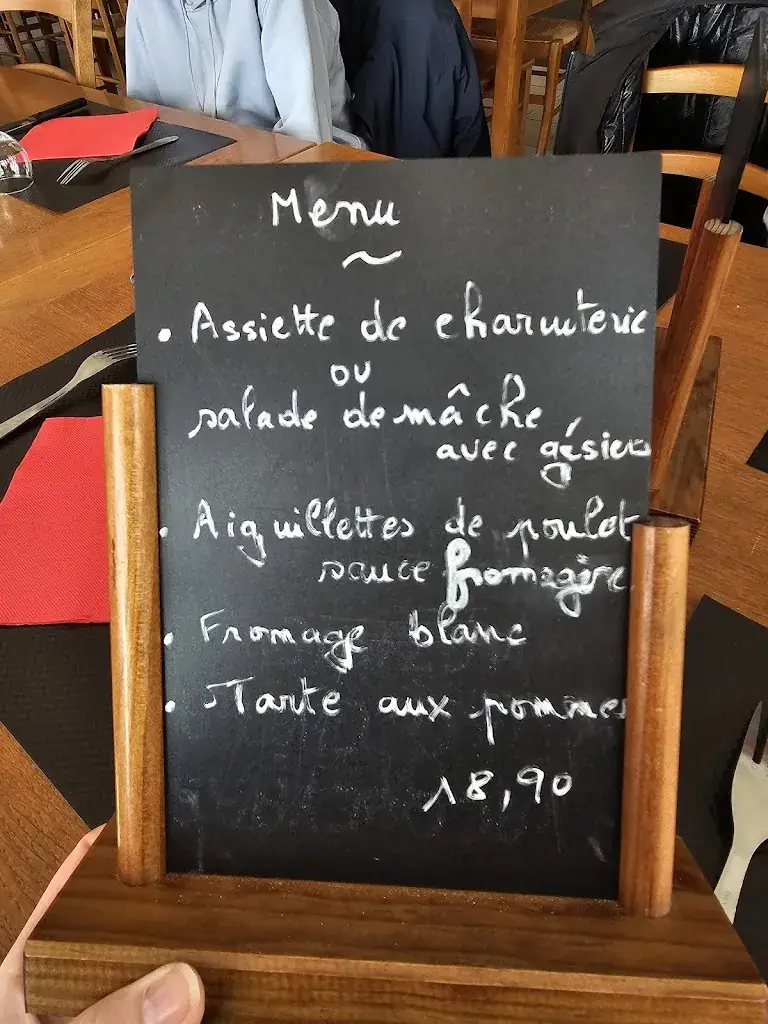 Menu
~
• Assiette de charcuterie
ou
salade de mâche
avec gésiers
• Aiguillettes de poulet
sauce fromagère
• Fromage blanc
• Tarte aux pommes
18,90